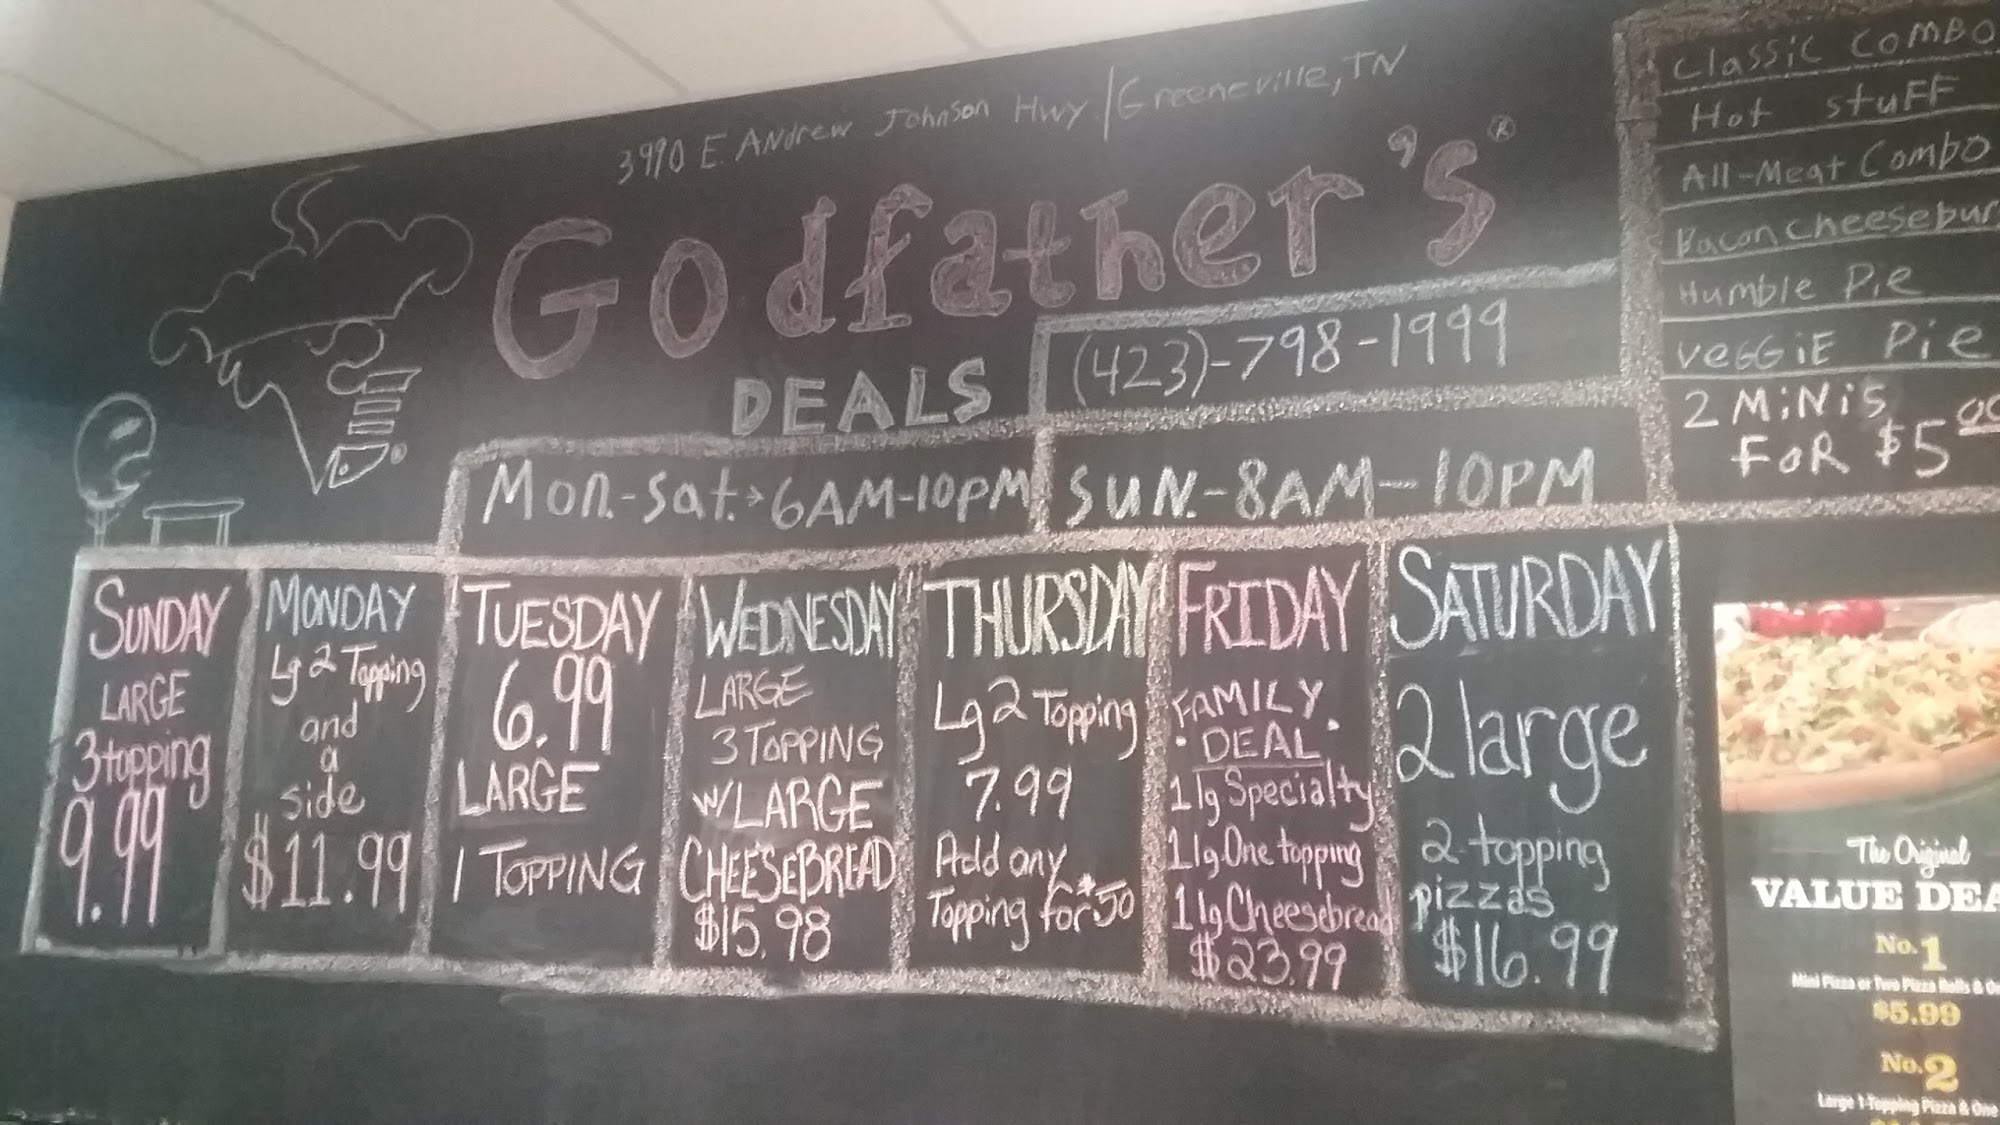 3990 E. Andrew Johnson Hwy / Greeneville, TN
Godfather's®
DEALS
(423)-798-1999
Mon.-Sat.→6AM-10PM
SUN.-8AM-10PM
SUNDAY
LARGE
3 topping
9.99
MONDAY
Lg 2 Topping
and
a
side
$11.99
TUESDAY
6.99
LARGE
1 TOPPING
WEDNESDAY
LARGE
3 TOPPING
W/ LARGE
CHEESEBREAD
$15.98
THURSDAY
Lg 2 Topping
7.99
Add any
Topping for $.50
FRIDAY
FAMILY
DEAL
1 lg Specialty
1 lg. One topping
1 lg Cheesebread
$23.99
SATURDAY
2 large
2-topping
pizzas
$16.99
Classic COMBO
Hot stuFF
All-Meat Combo
Bacon Cheesebur
Humble Pie
VeGGiE Pie
2 MiNis
FoR $5
The Original
VALUE DEA
No. 1
Mini Pizza or Two Pizza Rolls &
$5.99
No. 2
Large 1-Topping Pizza & One